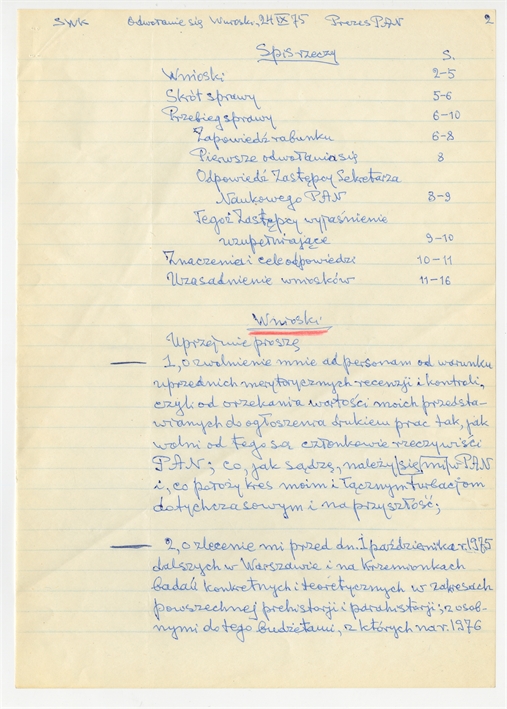 SWK Odwołanie się Wnioski, 24 IX 75 Prezes PAN 2
Spis rzeczy S.
Wnioski 2-5
Skrót sprawy 5-6
Przebieg sprawy 6-10
Zapowiedź rabunku 6-8
Pierwsze odwołania się 8
Odpowiedź Zastępcy Sekretarza
Naukowego PAN 8-9
Tegoż Zastępcy wyjaśnienie
uzupełniające 9-10
Znaczenie i cele odpowiedzi 10-11
Uzasadnienie wniosków 11-16
Wnioski
Uprzejmie proszę
1, o zwolnienie mnie ad personam od warunku
uprzednich merytorycznych recenzji i kontroli,
czyli od orzekania wartości moich przedsta-
wianych do ogłoszenia drukiem prac tak, jak
wolni od tego są członkowie rzeczywiści
PAN; co, jak sądzę, należy się mi w PAN
i, co położy kres moim i łącznym turbacjom
dotychczasowym i na przyszłość;
2, o zlecenie mi przed dn. 1 października r. 1975
dalszych w Warszawie i na Krzemionkach
badań konkretnych i teoretycznych w zakresach
powszechnej prehistorji i parahistorji; z osob-
nymi do tego budżetami, z których na r. 1976